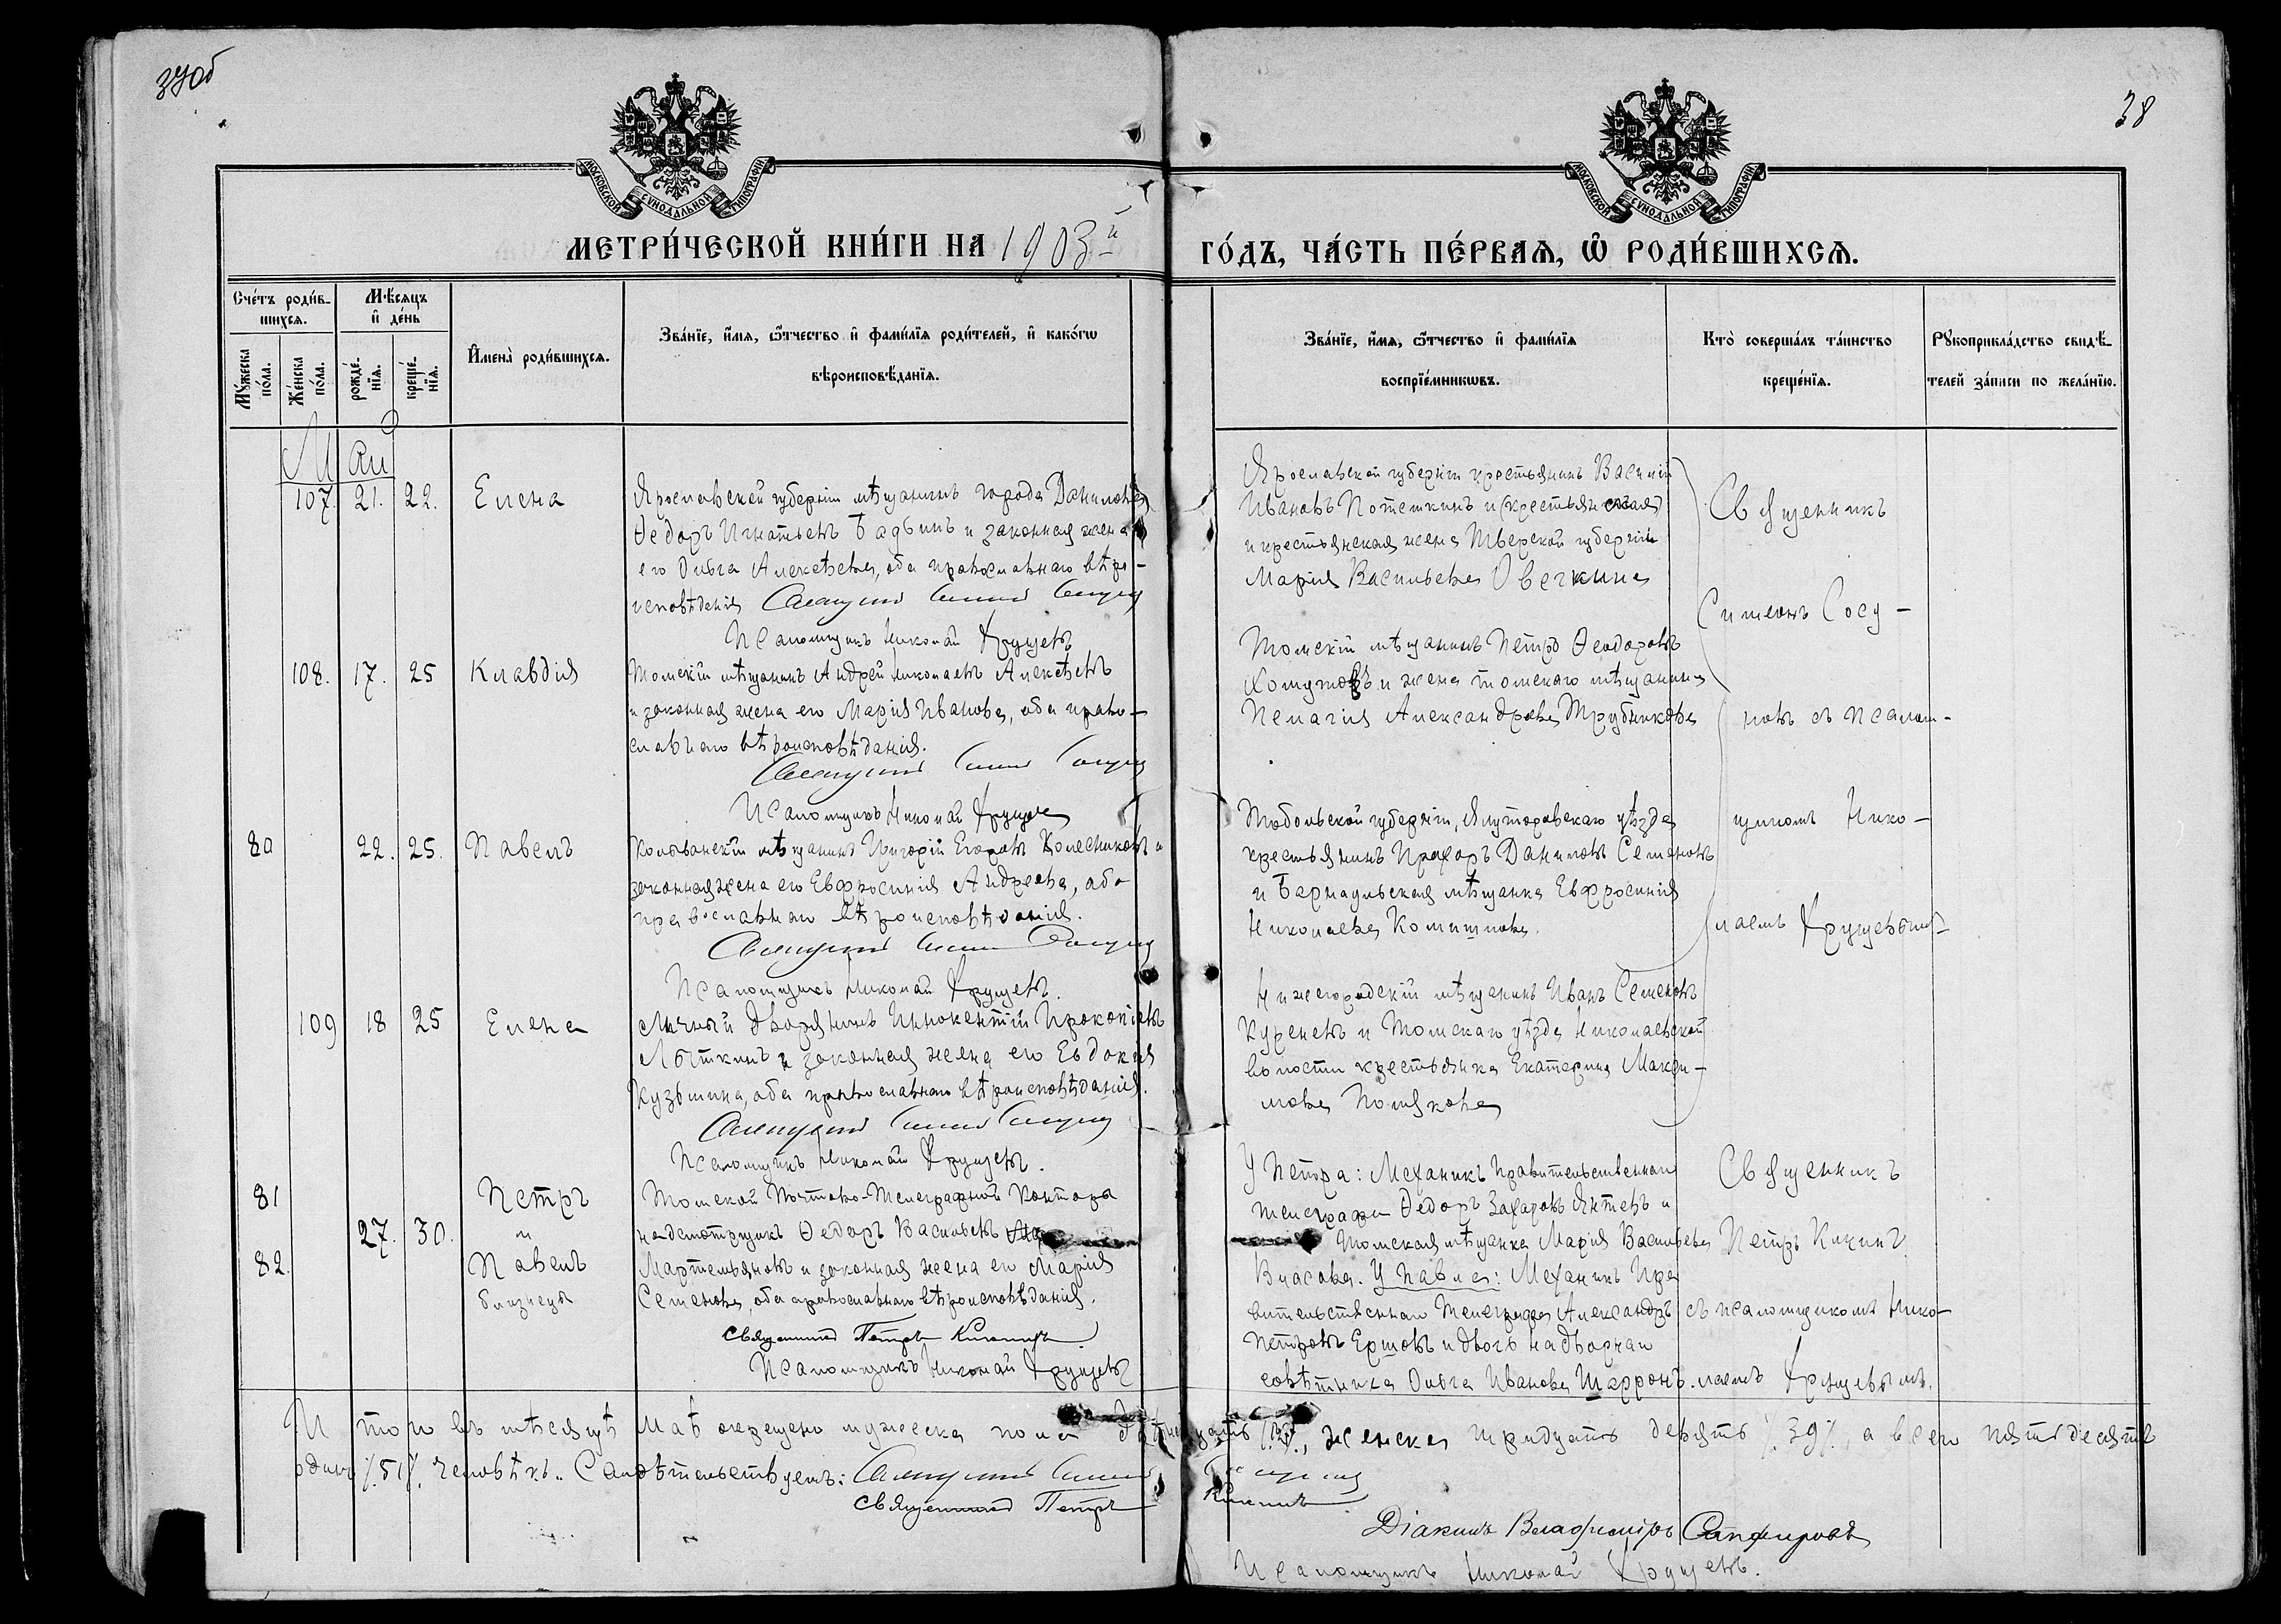 37об
38
МОСКОВСКОЙ СѴНОДАЛЬНОЙ ТИПОГРАФІИ
МОСКОВСКОЙ СѴНОДАЛЬНОЙ ТИПОГРАФІИ
МЕТРИ́ЧЕСКОЙ КНИ́ГИ НА 1903й
ГО́ДЪ, ЧА́СТЬ ПЕ́РВАЯ, Ѡ РОДИ́ВШИХСЯ.
Сче́тъ роди́в-
шихся.
Мѣ́сяцъ
и де́нь
Мꙋ́жеска по́ла.
Же́нска по́ла.
рожде́-
нїя.
креще́-
нїя.
Имена̀ роди́вшихся.
Зва́нїе, и́мя, ѻ́тчество и фами́лїя роди́телей, и како́гѡ
вѣроисповѣ́данїя.
Зва́нїе, и́мя, ѻ́тчество и фами́лїя
воспрїе́мникѡвъ.
Кто̀ соверша́лъ та́инство
креще́нїя.
Рꙋкоприкла́дство свидѣ́-
телей за́писи по жела́нїю.
Май
107. 21. 22. Елена
Ярославской губерніи мѣщанинъ города Данилова
Ѳедоръ Игнатьевъ Бадьинъ и законная жена
его Ольга Алексѣева, оба православнаго вѣро-
исповѣданія Священникъ Симеонъ Сосуновъ
Псаломщикъ Николай Хрущевъ
Ярославской губерніи крестьянинъ Василій
Ивановъ Потешкинъ и (крестьянская)
и крестьянская жена Тверской губерніи
Марія Васильева Овечкина
108. 17. 25 Клавдія
Томскій мѣщанинъ Андрей Николаевъ Алексѣевъ
и законная жена его Марія Иванова, оба право-
славнаго вѣроисповѣданія.
Священникъ Симеонъ Сосуновъ
Псаломщикъ Николай Хрущевъ
Томскій мѣщанинъ Петръ Ѳеодоровъ
Хомутовъ и жена томскаго мѣщанина
Пелагія Александрова Трубникова
80 22. 25. Павелъ
Колыванскій мѣщанинъ Григорій Егоровъ Колесниковъ и
законная жена его Евфросинія Андреева, оба
православнаго вѣроисповѣданія.
Священникъ Симеонъ Сосуновъ
Псаломщикъ Николай Хрущевъ.
Тобольской губерніи, Ялуторовскаго уѣзда
крестьянинъ Прохоръ Даниловъ Семеновъ
и Барнаульская мѣщанка Евфросинія
Николаева
109 18 25 Елена
Личный дворянинъ Иннокентій Прокопіевъ
Лыткинъ и законная жена его Евдокія
Кузьмина, оба православнаго вѣроисповѣданія.
Священникъ Симеонъ Сосуновъ
Псаломщикъ Николай Хрущевъ.
Нижегородскій мѣщанинъ Иванъ Семеновъ
Куреневъ и Томскаго уѣзда Николаевской
волости крестьянка Екатерина Макси-
мова Полякова
Священникъ
Симеонъ Сосу-
новъ съ псалом-
щикомъ Нико-
лаемъ Хрущевымъ
81
82.
27. 30.
Петръ
и
Павелъ
близнецы
Томской Почтово-Телеграфной Конторы
надсмотрщикъ Ѳедоръ Васильевъ
Мартемьяновъ и законная жена его Марія
Семенова, оба православнаго вѣроисповѣданія.
Священникъ Петръ
Псаломщикъ Николай Хрущевъ
У Петра: Механикъ Правительственнаго
телеграфа Ѳедоръ Захаровъ и
Томская мѣщанка Марія Васильева
Власова. У Павла: Механикъ Пра
вительственнаго Телеграфа Александръ
Петровъ Ершовъ и дочь надворнаго
совѣтника Ольга Иванова Шерронъ.
Священникъ
Петръ
съ псаломщикомъ Нико-
лаемъ Хрущевымъ.
Итого въ мѣсяцѣ Маѣ окрещено мужеска пола двѣнадцать /.12./, женска тридцать девять /.39/., а всего пятьдесятъ
одинъ /.51/. человѣкъ. Свидѣтельствуемъ: Священникъ Симеонъ Сосуновъ
Священникъ Петръ
Діаконъ Владиміръ Сапфировъ
Псаломщикъ Николай Хрущевъ.